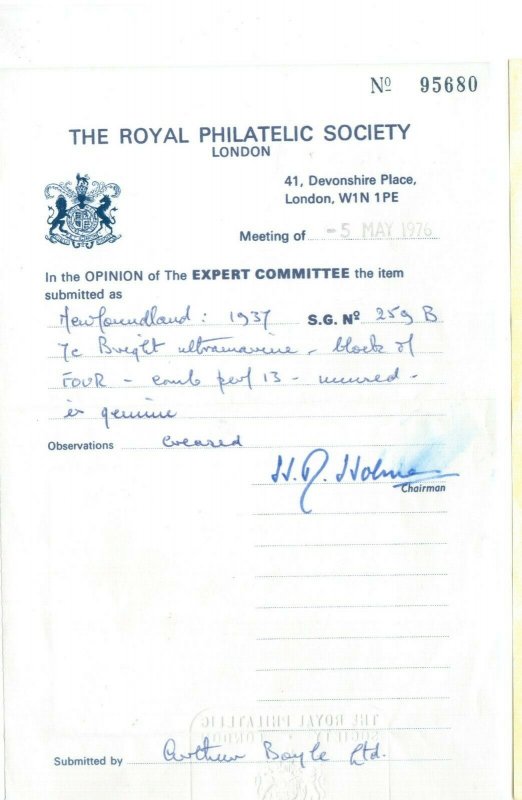 Nº 95680
THE ROYAL PHILATELIC SOCIETY
LONDON
41, Devonshire Place,
London, W1N 1PE
Meeting of -5 MAY 1976
In the OPINION of The EXPERT COMMITTEE the item
submitted as
Newfoundland: 1937 S.G. Nº 259 B
7c Bright ultramarine - block of
FOUR - comb perf 13 - unused -
is genuine
Observations creased
H. R. Holmes
Chairman
THE ROYAL PHILATELIC
SOCIETY
LONDON
Submitted by Arthur Boyle Ltd.